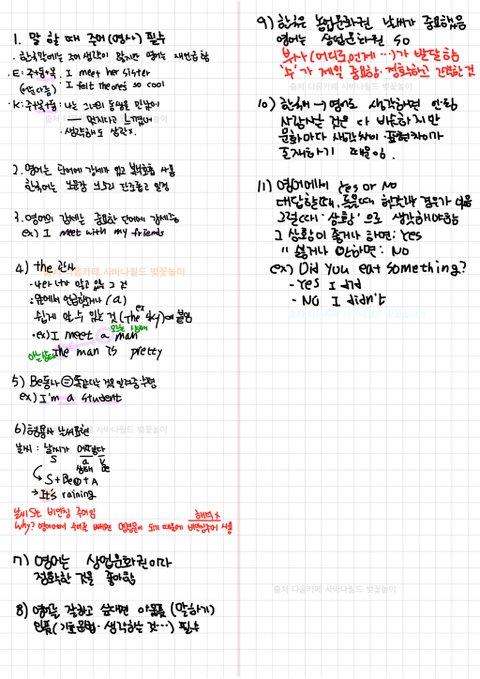 1. 말 할 때 주어(명사) 필수
· 한국말에는 주어 생략이 많지만 영어는
· E : 주+동+목 : I meet her sister
I felt the ones so cool
· K : 주+목+동 : 나는 그녀의 동생을 만났어
멋지다고 느꼈어
생각해도
2. 영어는 단어에 강세가 있고 사용
한국어는 노폴링 느리고 단조롭고 일정
3. 영어의 강세는 중요한 단어에 강세줌
ex) I meet with my friends
4) the 관사
- 너와 나가 알고 있는 그 것
: 앞에서 언급했거나 (a)
쉽게 알 수 있는 것 (ex the sky)에 붙임
· ex) I meet a man
모르는 남자
아는 남자 the man is pretty
5) Be동사 = 똑같다는 것을
ex) I'm a student
6) 형용사 날씨표현
날씨 : 날씨가 어떻다
S a V
상태 be
S + Be + A
→ It's raining
날씨 S는 비인칭 주어임
해석 x
why? 영어에서 주어를 빼면 명령문이 되기 때문에 비인칭주어 사용
7) 영어는 상업문화권이라
정확한 것을 좋아함
8) 영어를 잘하고 싶다면 아웃풋 (말하기)
인풋(기초문법 · 생각하는 것…) 필수
9) 한국은 농업문화권 날씨가 중요했음
영어는 상업문화권 so
부사 (어디로 언제 …)가 발달함
'주'가 제일 중요함 · 정확하고 간결한 것
10) 한국어 → 영어로 생각하면 안됨
사람사는 것은 다 비슷하지만
문화마다 생각차이 표현차이가
존재하기 때문임.
11) 영어에서 yes or No
대답할때, 한국과 경우가 다름
그럴때 '상황'으로 생각해야함
그 상황이 좋거나 하면 : yes
" 싫거나 안하면 : No
ex) Did you eat something?
- yes I did
- NO I didn't
출처 다음카페 사바나월드 벚꽃놀이